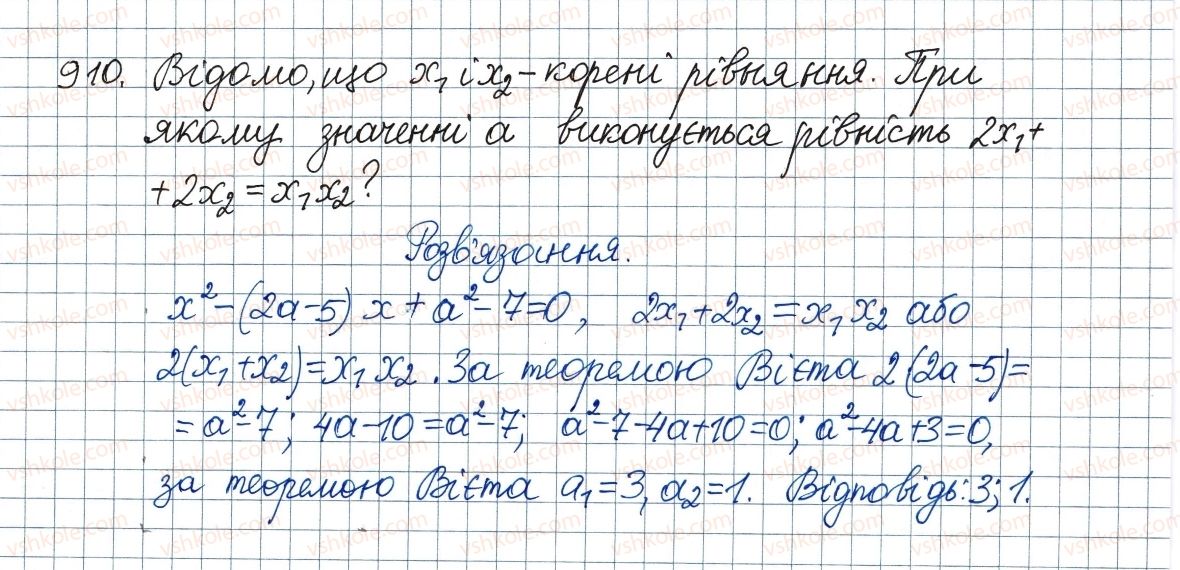 910. Відомо, що x₁ і x₂ – корені рівняння. При
якому значенні a виконується рівність 2x₁+
+2x₂ = x₁x₂?
Розв'язання.
x² – (2a–5) x + a² – 7 = 0, 2x₁+2x₂ = x₁x₂ або
2(x₁+x₂) = x₁x₂. За теоремою Вієта 2(2a–5) =
= a² – 7; 4a – 10 = a² – 7; a² – 7 – 4a + 10 = 0; a² – 4a + 3 = 0,
за теоремою Вієта a₁ = 3, a₂ = 1. Відповідь: 3; 1.